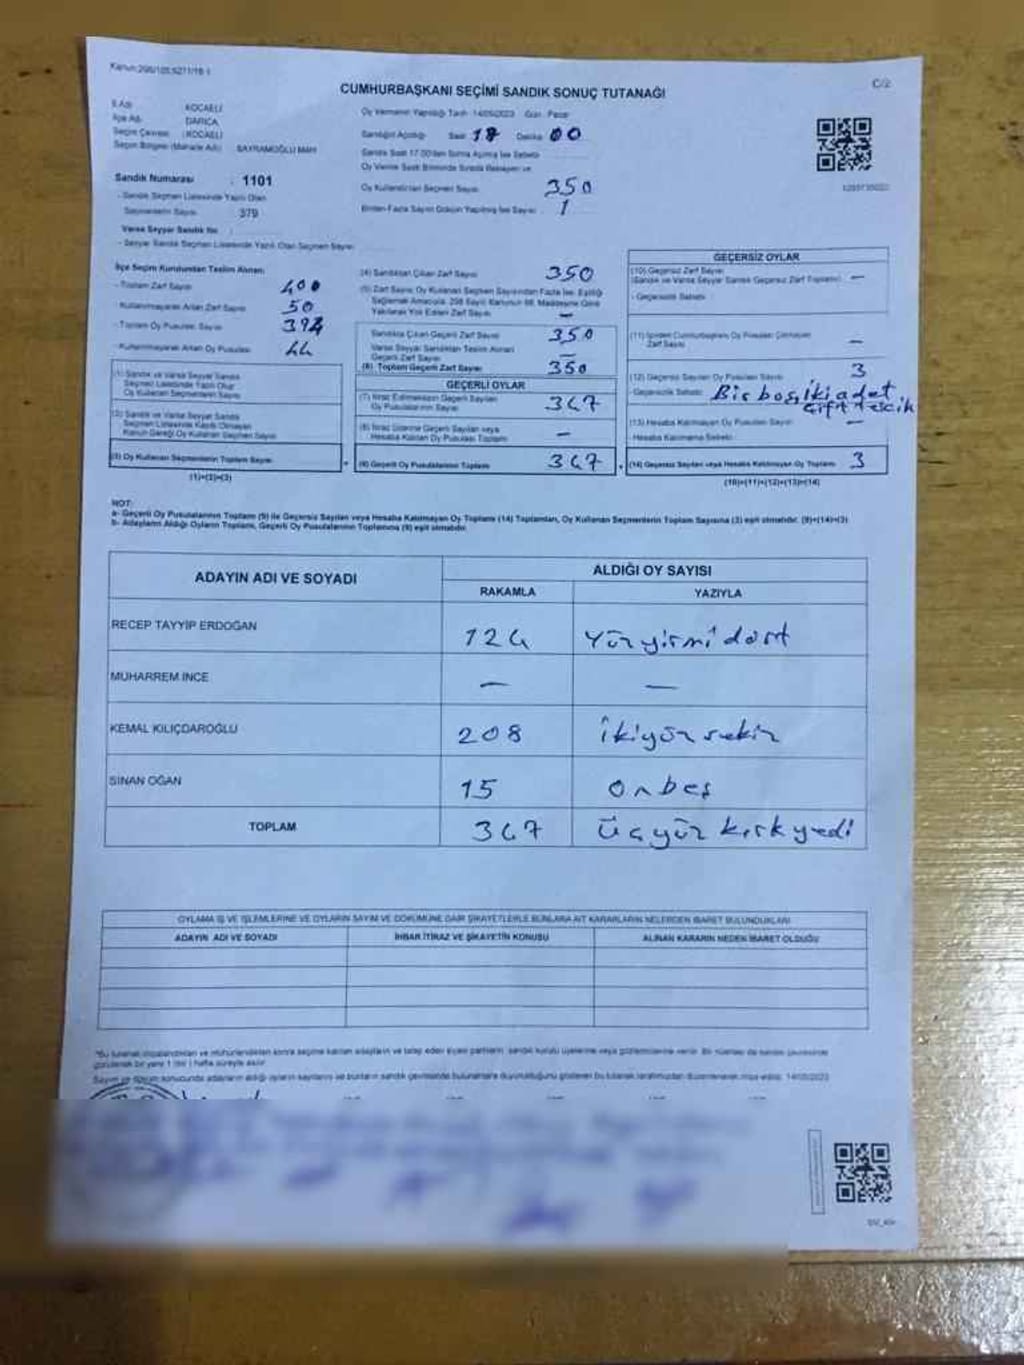 Kanun:298/105;6271/18-1
C/2
CUMHURBAŞKANI SEÇİMİ SANDIK SONUÇ TUTANAĞI
İl Adı : KOCAELİ
İlçe Adı : DARICA
Seçim Çevresi : KOCAELİ
Seçim Bölgesi (Mahalle Adı) : BAYRAMOĞLU MAH.
Sandık Numarası : 1101
- Sandık Seçmen Listesinde Yazılı Olan
Seçmenlerin Sayısı : 379
Varsa Seyyar Sandık No :
- Seyyar Sandık Seçmen Listesinde Yazılı Olan Seçmen Sayısı
Oy Vermenin Yapıldığı Tarih : 14/05/2023 Gün : Pazar
Sandığın Açıldığı Saat 17 Dakika 00
Sandık Saat 17.00'den Sonra Açılmış İse Sebebi
Oy Verme Saati Bitiminde Sırada Bekleyen ve
Oy Kullandırılan Seçmen Sayısı : 350
Birden Fazla Sayım Döküm Yapılmış İse Sayısı : 1
İlçe Seçim Kurulundan Teslim Alınan:
- Toplam Zarf Sayısı : 400
- Kullanılmayarak Artan Zarf Sayısı : 50
- Toplam Oy Pusulası Sayısı : 394
- Kullanılmayarak Artan Oy Pusulası : 44
(1) Sandık ve Varsa Seyyar Sandık
Seçmen Listesinde Yazılı Olup
Oy Kullanan Seçmenlerin Sayısı
(2) Sandık ve Varsa Seyyar Sandık
Seçmen Listesinde Kayıtlı Olmayan
Kanun Gereği Oy Kullanan Seçmen Sayısı
(3) Oy Kullanan Seçmenlerin Toplam Sayısı
(1)+(2)=(3)
(4) Sandıktan Çıkan Zarf Sayısı 350
(5) Zarf Sayısı Oy Kullanan Seçmen Sayısından Fazla İse, Eşitliği
Sağlamak Amacıyla, 298 Sayılı Kanunun 98. Maddesine Göre
Yakılarak Yok Edilen Zarf Sayısı —
Sandıkta Çıkan Geçerli Zarf Sayısı 350
Varsa Seyyar Sandıktan Teslim Alınan
Geçerli Zarf Sayısı —
(6) Toplam Geçerli Zarf Sayısı 350
GEÇERLİ OYLAR
(7) İtiraz Edilmeksizin Geçerli Sayılan
Oy Pusulalarının Sayısı 347
(8) İtiraz Üzerine Geçerli Sayılan veya
Hesaba Katılan Oy Pusulası Toplamı —
(9) Geçerli Oy Pusulalarının Toplamı 347
GEÇERSİZ OYLAR
(10) Geçersiz Zarf Sayısı
(Sandık ve Varsa Seyyar Sandık Geçersiz Zarf Toplamı) —
- Geçersizlik Sebebi
(11) İçinden Cumhurbaşkanı Oy Pusulası Çıkmayan
Zarf Sayısı —
(12) Geçersiz Sayılan Oy Pusulası Sayısı 3
- Geçersizlik Sebebi : Bir boş, iki adet
çift tescih
(13) Hesaba Katılmayan Oy Pusulası Sayısı —
Hesaba Katılmama Sebebi
(14) Geçersiz Sayılan veya Hesaba Katılmayan Oy Toplamı 3
(10)+(11)+(12)+(13)=(14)
NOT:
a- Geçerli Oy Pusulalarının Toplamı (9) ile Geçersiz Sayılan veya Hesaba Katılmayan Oy Toplamı (14) Toplamları, Oy Kullanan Seçmenlerin Toplam Sayısına (3) eşit olmalıdır. (9)+(14)=(3)
b- Adayların Aldığı Oyların Toplamı, Geçerli Oy Pusulalarının Toplamına (9) eşit olmalıdır.
ADAYIN ADI VE SOYADI
ALDIĞI OY SAYISI
RAKAMLA YAZIYLA
RECEP TAYYİP ERDOĞAN 124 Yüzyirmi dört
MUHARREM İNCE — —
KEMAL KILIÇDAROĞLU 208 ikiyüz sekiz
SİNAN OĞAN 15 onbeş
TOPLAM 347 üçyüz kırk yedi
OYLAMA İŞ VE İŞLEMLERİNE VE OYLARIN SAYIM VE DÖKÜMÜNE DAİR ŞİKAYETLERLE BUNLARA AİT KARARLARIN NELERDEN İBARET BULUNDUKLARI
ADAYIN ADI VE SOYADI İHBAR İTİRAZ VE ŞİKAYETİN KONUSU ALINAN KARARIN NEDEN İBARET OLDUĞU
*Bu tutanak imzalandıktan ve mühürlendikten sonra seçime katılan adayların ve talep eden siyasi partilerin sandık kurulu üyelerine veya gözlemcilerine verilir. Bir nüshası da sandık çevresinde
görülecek bir yere 1 (bir) hafta süreyle asılır.